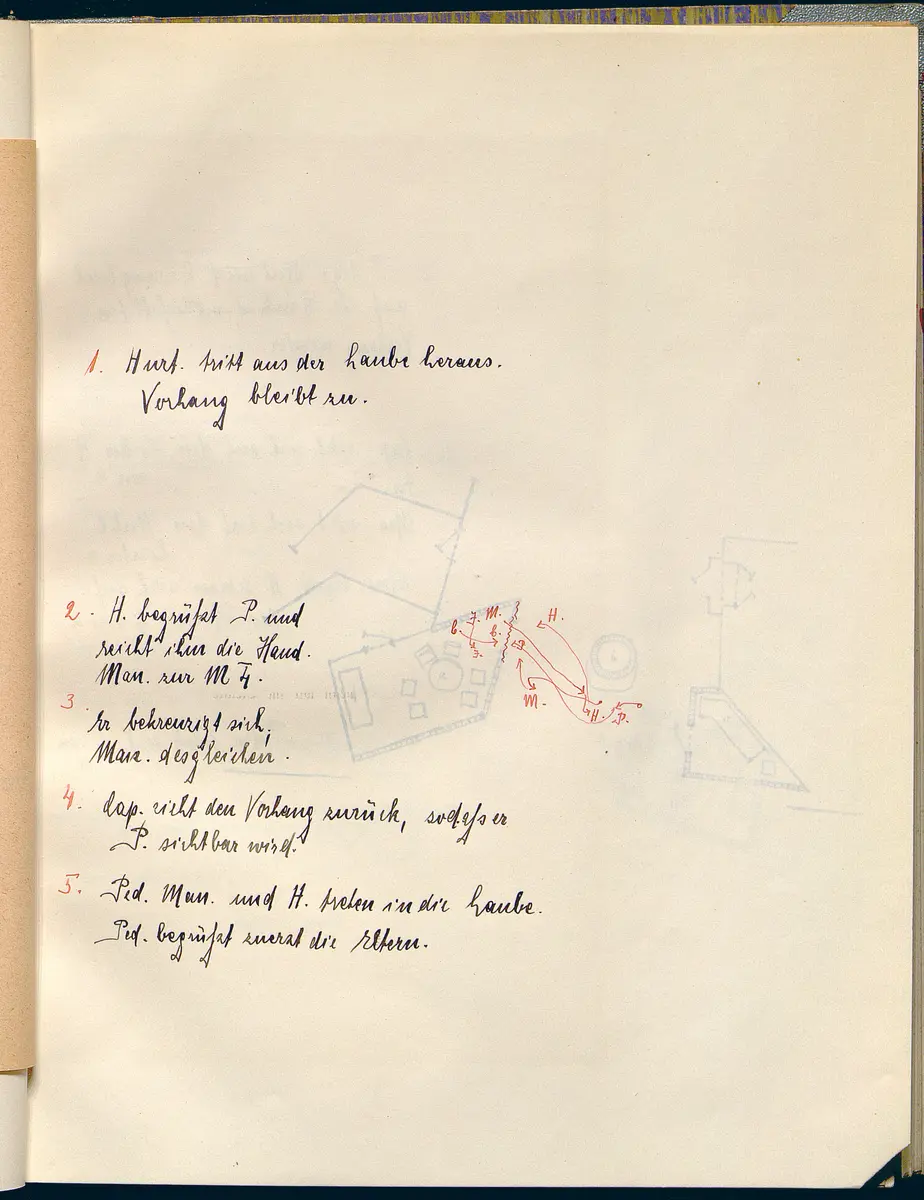 1. Hurt. tritt aus der Laube heraus.
Vorhang bleibt zu.
2. H. begrüßt P. und
reicht ihm die Hand.
Man. zur M
3.
Er bekreuzigt sich,
Man. desgleichen.
4. Cap. zieht den Vorhang zurück, sodaß er
P. sichtbar wird.
5. Ped. Man. und H. treten in die Laube.
Ped. begrüßt zuerst die Eltern.
M. H.
M. H. P.